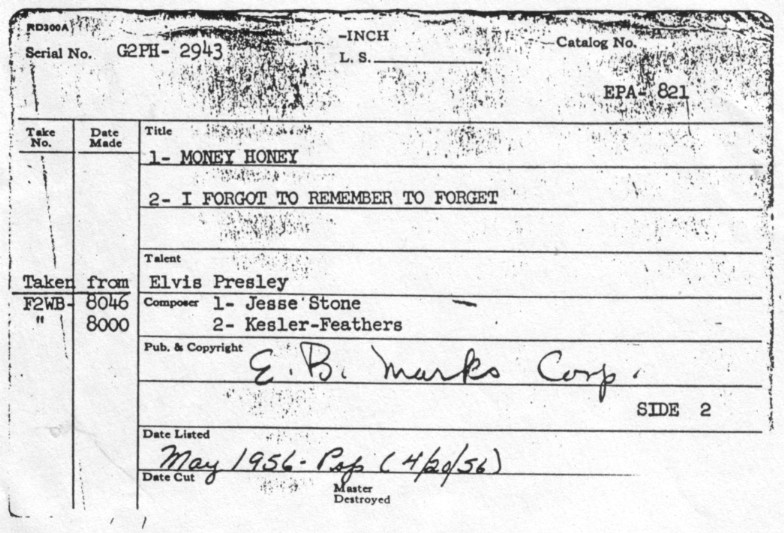 RD300A
Serial No. G2PH- 2943
-INCH
L. S.
Catalog No.
EPA- 821
Take No.
Date Made
Title
1- MONEY HONEY
2- I FORGOT TO REMEMBER TO FORGET
Talent
Taken from Elvis Presley
F2WB- 8046 Composer 1- Jesse Stone
" 8000 2- Kesler-Feathers
Pub. & Copyright E. B. Marks Corp.
SIDE 2
Date Listed
May 1956 - Pop (4/20/56)
Date Cut
Master
Destroyed